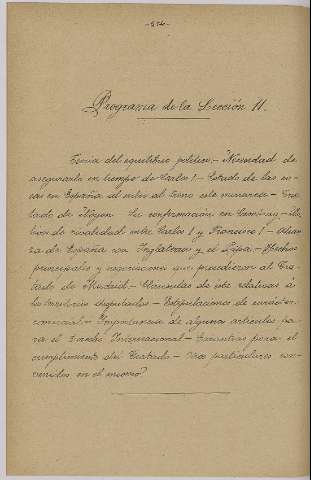 Programa de la Lección 11.
Teoría del equilibrio político.- Necesidad de
asegurarlo en tiempo de Carlos I - Estado de las co-
sas en España al subir al trono este monarca - Tra-
tado de Noyon. Su confirmación en
de rivalidad entre Carlos I y Francisco I - Alian-
za de España con Inglaterra y el Papa. - Hechos
principales y negociaciones que precedieron al Tra-
tado de Madrid. - Cláusulas de éste relativas á
los territorios disputados - Estipulaciones de carácter
comercial - Importancia de algunos artículos pa-
ra el Derecho Internacional - Garantías para el
cumplimiento del Tratado - Otros particulares con-
tenidos en el mismo